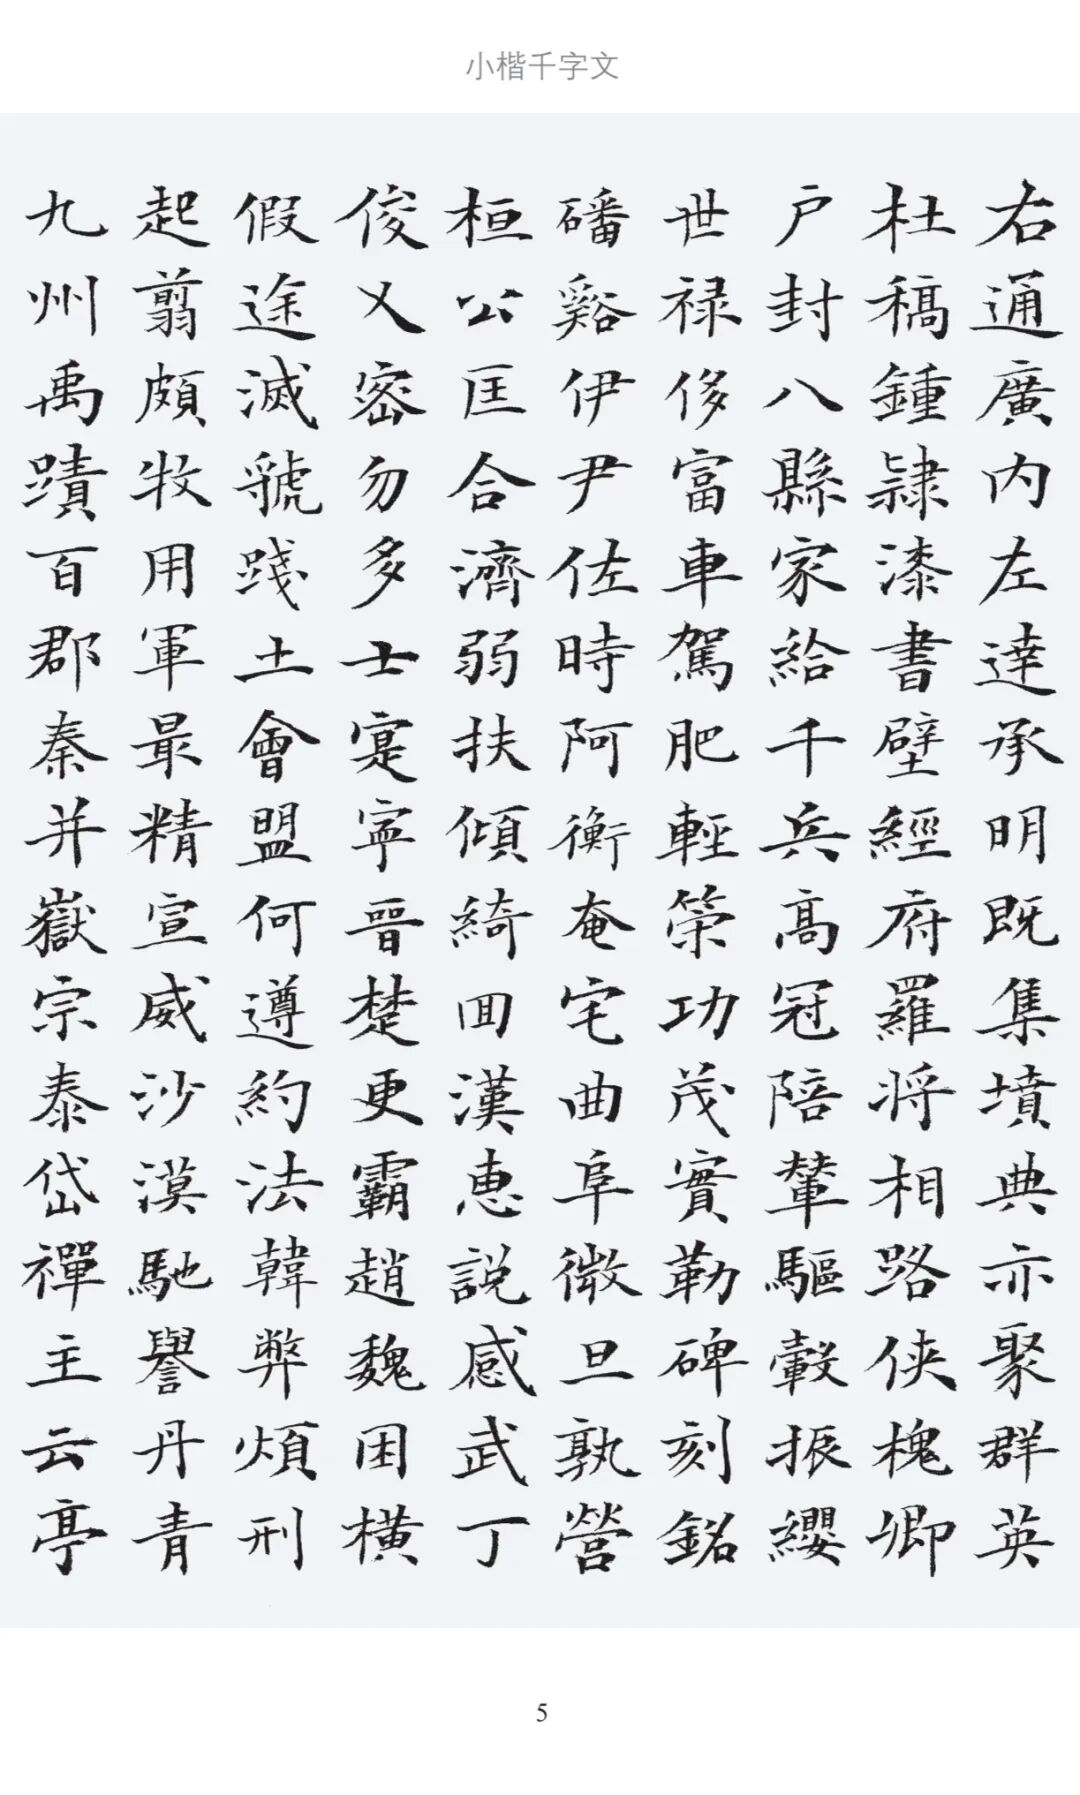 小楷千字文
右通廣内左達承明既集墳典亦聚群英
杜稿鍾隸漆書壁經府羅将相路俠槐卿
户封八縣家給千兵高冠陪輦驅轂振纓
世禄侈富車駕肥輕策功茂實勒碑刻銘
磻谿伊尹佐時阿衡奄宅曲阜微旦孰營
桓公匡合濟弱扶傾綺回漢恵説感武丁
俊乂密勿多士寔寧晉楚更霸趙魏困橫
假途滅虢踐土會盟何遵約法韓弊煩刑
起翦頗牧用軍最精宣威沙漠馳譽丹青
九州禹蹟百郡秦并嶽宗泰岱禪主云亭
5